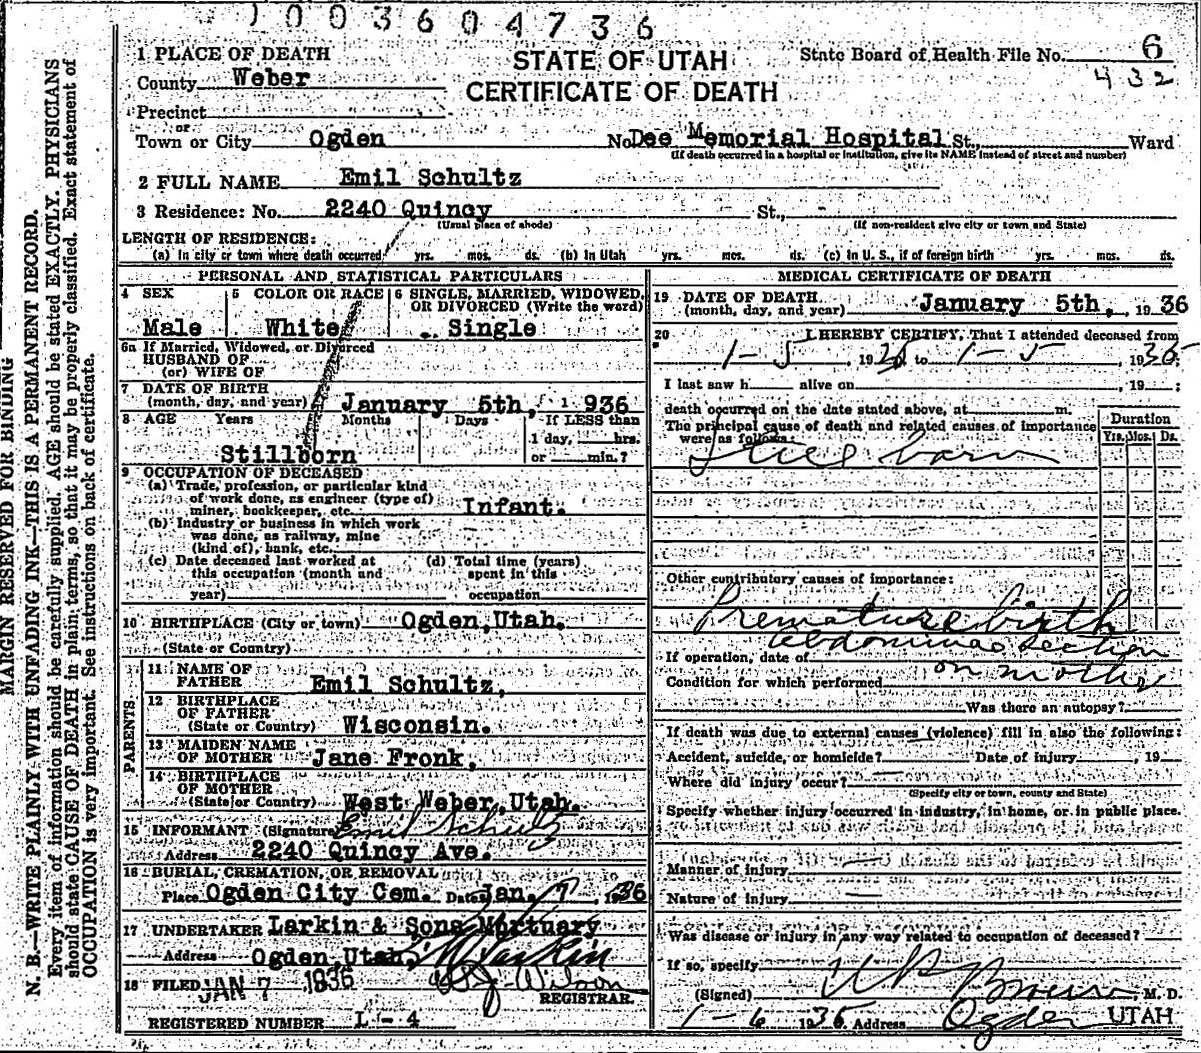 1003604736
1 PLACE OF DEATH
STATE OF UTAH
State Board of Health File No. 6
County Weber
CERTIFICATE OF DEATH
432
Precinct
or
Town or City Ogden No. Dee Memorial Hospital St., Ward
(If death occurred in a hospital or institution, give its NAME instead of street and number)
2 FULL NAME Emil Schultz
3 Residence: No. 2240 Quincy St.,
(Usual place of abode) (If non-resident give city or town and State)
LENGTH OF RESIDENCE:
(a) In city or town where death occurred yrs. mos. ds. (b) In Utah yrs. mos. ds. (c) In U. S., if of foreign birth yrs. mos. ds.
PERSONAL AND STATISTICAL PARTICULARS
4 SEX 5 COLOR OR RACE 6 SINGLE, MARRIED, WIDOWED, OR DIVORCED (Write the word)
Male White Single
6a If Married, Widowed, or Divorced
HUSBAND OF
(or) WIFE OF
7 DATE OF BIRTH
(month, day, and year) January 5th, 1936
8 AGE Years Months Days If LESS than
1 day, hrs.
or min.?
Stillborn
9 OCCUPATION OF DECEASED
(a) Trade, profession, or particular kind
of work done, as engineer (type of)
miner, bookkeeper, etc. Infant.
(b) Industry or business in which work
was done, as railway, mine
(kind of), bank, etc.
(c) Date deceased last worked at
this occupation (month and
year)
(d) Total time (years)
spent in this
occupation
10 BIRTHPLACE (City or town) Ogden, Utah.
(State or Country)
PARENTS
11 NAME OF
FATHER Emil Schultz,
12 BIRTHPLACE
OF FATHER
(State or Country) Wisconsin.
13 MAIDEN NAME
OF MOTHER Jane Fronk,
14 BIRTHPLACE
OF MOTHER
(State or Country) West Weber, Utah.
15 INFORMANT (Signature) Emil Schultz
Address 2240 Quincy Ave.
16 BURIAL, CREMATION, OR REMOVAL
Place Ogden City Cem. Date Jan. 7, 1936
17 UNDERTAKER Larkin & Sons Mortuary
Address Ogden, Utah, Larkin
18 FILED JAN 7 1936 Wilson
REGISTRAR.
REGISTERED NUMBER L-4
MEDICAL CERTIFICATE OF DEATH
19 DATE OF DEATH
(month, day, and year) January 5th, 1936
20 I HEREBY CERTIFY, That I attended deceased from
1-5, 19 to 1-5, 1936
I last saw h alive on , 19 ;
death occurred on the date stated above, at m.
The principal cause of death and related causes of importance
were as follows:
Duration
Yrs. Mos. Ds.
Still born
Other contributory causes of importance:
Premature birth
abdominal section
If operation, date of
on mother
Condition for which performed
Was there an autopsy?
If death was due to external causes (violence) fill in also the following:
Accident, suicide, or homicide? Date of injury , 19
Where did injury occur?
(Specify city or town, county and State)
Specify whether injury occurred in industry, in home, or in public place.
Manner of injury
Nature of injury
Was disease or injury in any way related to occupation of deceased?
If so, specify
(Signed) M. D.
1-6 1936 Address Ogden UTAH
MARGIN RESERVED FOR BINDING
N. B.—WRITE PLAINLY WITH UNFADING INK—THIS IS A PERMANENT RECORD.
Every item of information should be carefully supplied. AGE should be stated EXACTLY. PHYSICIANS
should state CAUSE OF DEATH in plain terms, so that it may be properly classified. Exact statement of
OCCUPATION is very important. See instructions on back of certificate.